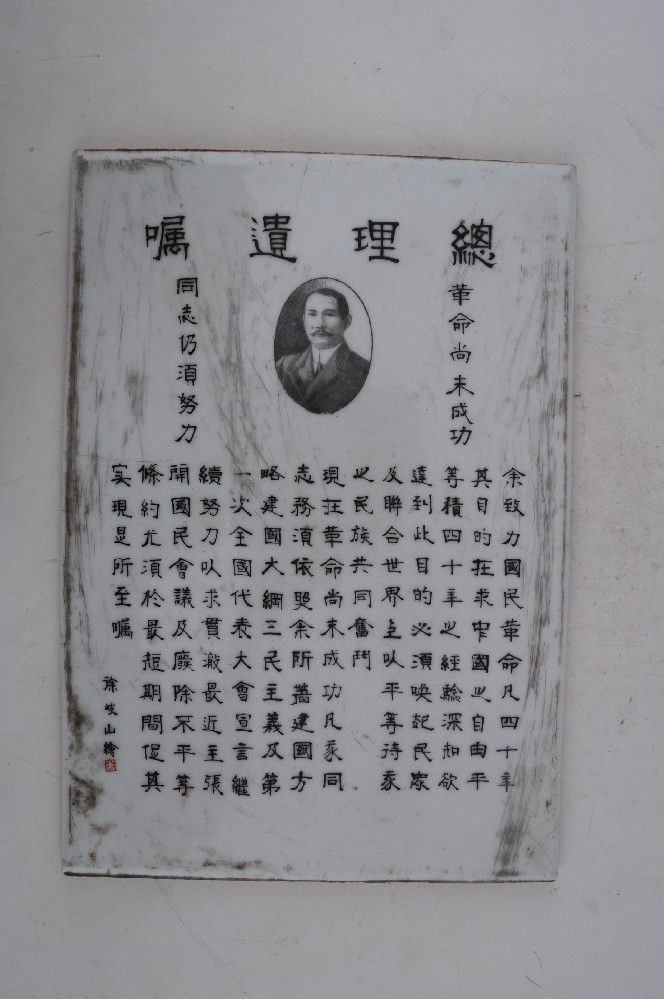 總理遺囑
革命尚未成功
同志仍須努力
余致力國民革命凡四十年
其目的在求中國之自由平
等積四十年之經驗深知欲
達到此目的必須喚起民眾
及聯合世界上以平等待我
之民族共同奮鬥
現在革命尚未成功凡我同
志務須依照余所著建國方
略建國大綱三民主義及第
一次全國代表大會宣言繼
續努力以求貫澈最近主張
開國民會議及廢除不平等
條約尤須於最短期間促其
實現是所至囑
徐岐山繪